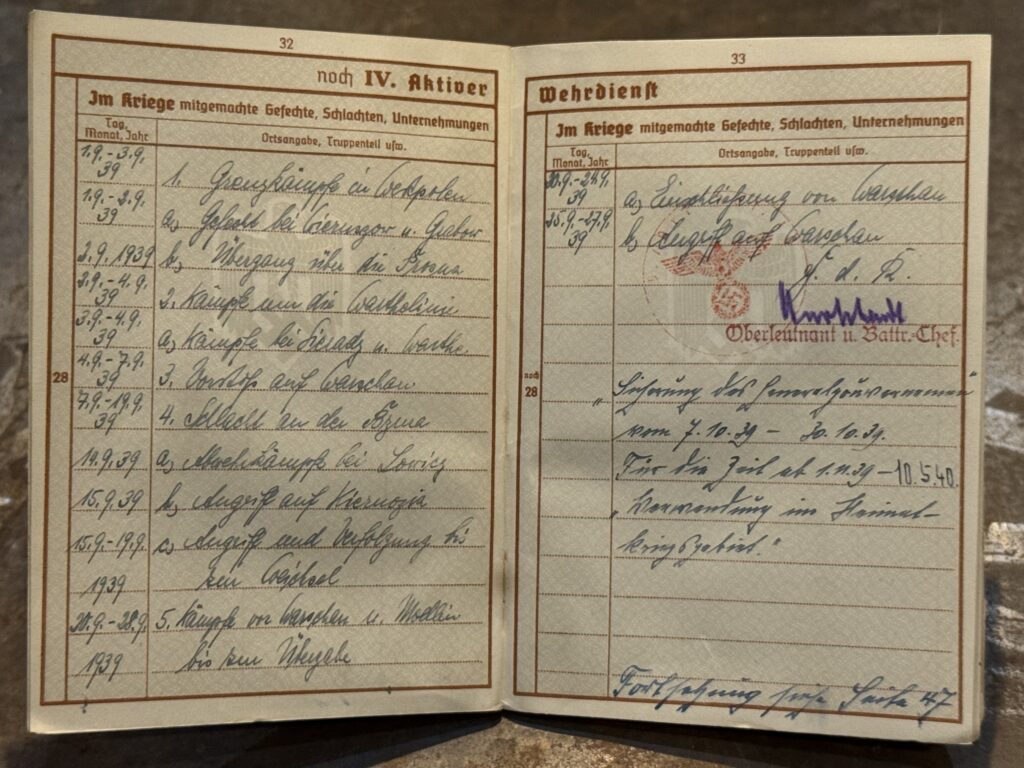 32
noch IV. Aktiver
Im Kriege mitgemachte Gefechte, Schlachten, Unternehmungen
Tag, Monat, Jahr
Ortsangabe, Truppenteil usw.
1.9.-3.9. 39 1. Grenzkämpfe in Westpolen
1.9.-2.9. 39 a) Gefecht bei Wieruszow u. Grabow
2.9.1939 b) Übergang über die Prosna
2.9.-4.9. 39 2. Kämpfe um die Warthelinie
3.9.-4.9. 39 a) Kämpfe bei Sieradz u. Warthe.
4.9.-7.9. 39 3. Vorstoß auf Warschau
28
7.9.-19.9. 39 4. Schlacht an der Bzura
14.9.39 a) Abwehrkämpfe bei Lowicz
15.9.39 b) Angriff auf Kiernozia
15.9.-19.9. c) Angriff und Verfolgung bis
1939 zur Weichsel
20.9.-28.9. 5. Kämpfe vor Warschau u. Modlin
1939 bis zur Übergabe
33
Wehrdienst
Im Kriege mitgemachte Gefechte, Schlachten, Unternehmungen
Tag, Monat, Jahr
Ortsangabe, Truppenteil usw.
20.9.-24.9. 39 a) Einschließung von Warschau
25.9.-27.9. 39 b) Angriff auf Warschau
F. d. R.
Oberleutnant u. Battr.-Chef.
noch 28
„Sicherung des Generalgouvernements"
vom 7.10.39 – 30.10.39.
Für die Zeit ab 1.11.39 – 10.5.40.
„Verwendung im Heimat-
kriegsgebiet."
Fortsetzung siehe Seite 47